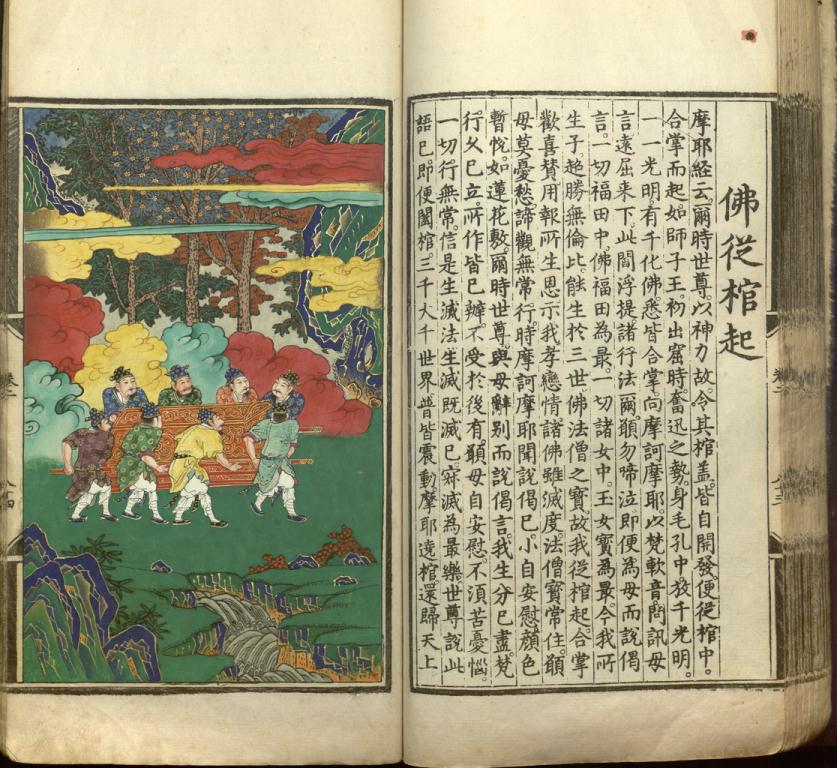 佛從棺起
摩耶経云。爾時世尊。以神力故。令其棺盖皆自開發。便從棺中。
合掌而起。如師子王。初出窟時奮迅之勢。身毛孔中放千光明。
一一光明。有千化佛。悉皆合掌向摩訶摩耶。以梵軟音問訊母
言。遠屈来下。此閻浮提諸行法爾。願勿啼泣。即便為母而說偈
言。一切福田中。佛福田為最。一切諸女中。玉女寶為最。今我所
生子。超勝無倫比。能生於三世佛法僧之寶。故我從棺起合掌
歡喜賛用報所生恩。示我孝戀情。諸佛雖滅度。法僧寶常住。願
母莫憂愁。諦觀無常行。時摩訶摩耶聞說偈已。小自安慰。顔色
暫悅。如蓮花敷。爾時世尊。與母辭别而說偈言。我生分已盡。梵
行久已立。所作皆已辦。不受於後有。願母自安慰。不須苦憂惱。
一切行無常。信是生滅法。生滅既滅已。寂滅為最樂。世尊說此
語已。即便闔棺。三千大千世界普皆震動。摩耶遶棺還歸天上